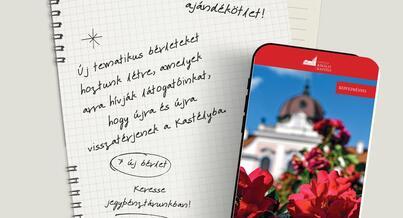 ajándékötlet!
Új tematikus bérleteket
hoztunk létre, amelyek
arra hívják látogatóinkat,
hogy újra és újra
visszatérjenek a Kastélyba.
7 új bérlet
Keresse
jegypénztárunkban!
KIRÁLYI
KASTÉLY